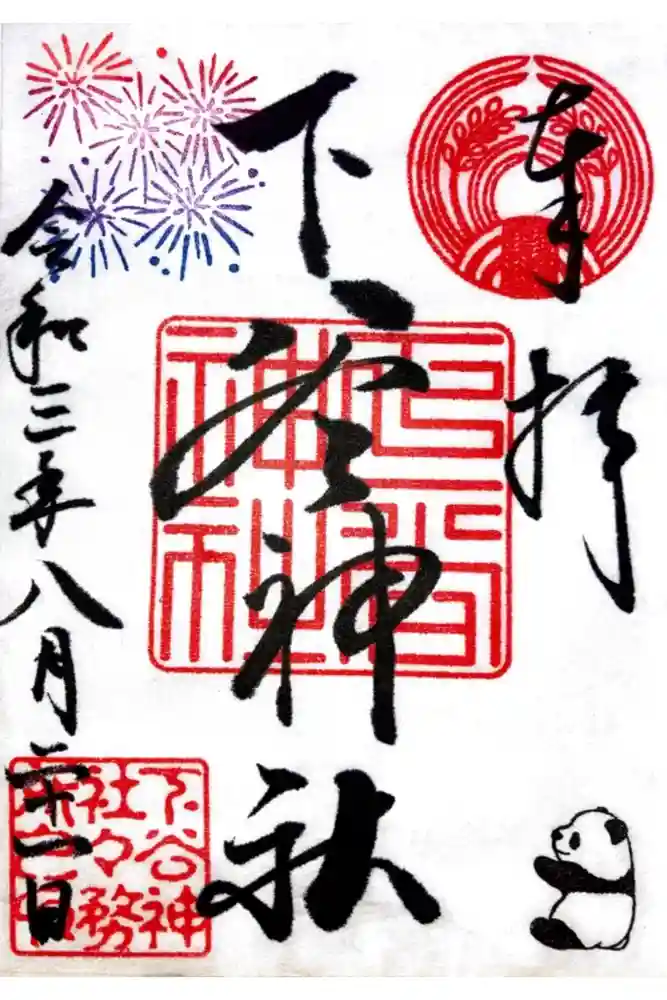 奉拝
下谷神社
下谷
神社
令和三年八月二十一日
下谷神
社々務
所之印